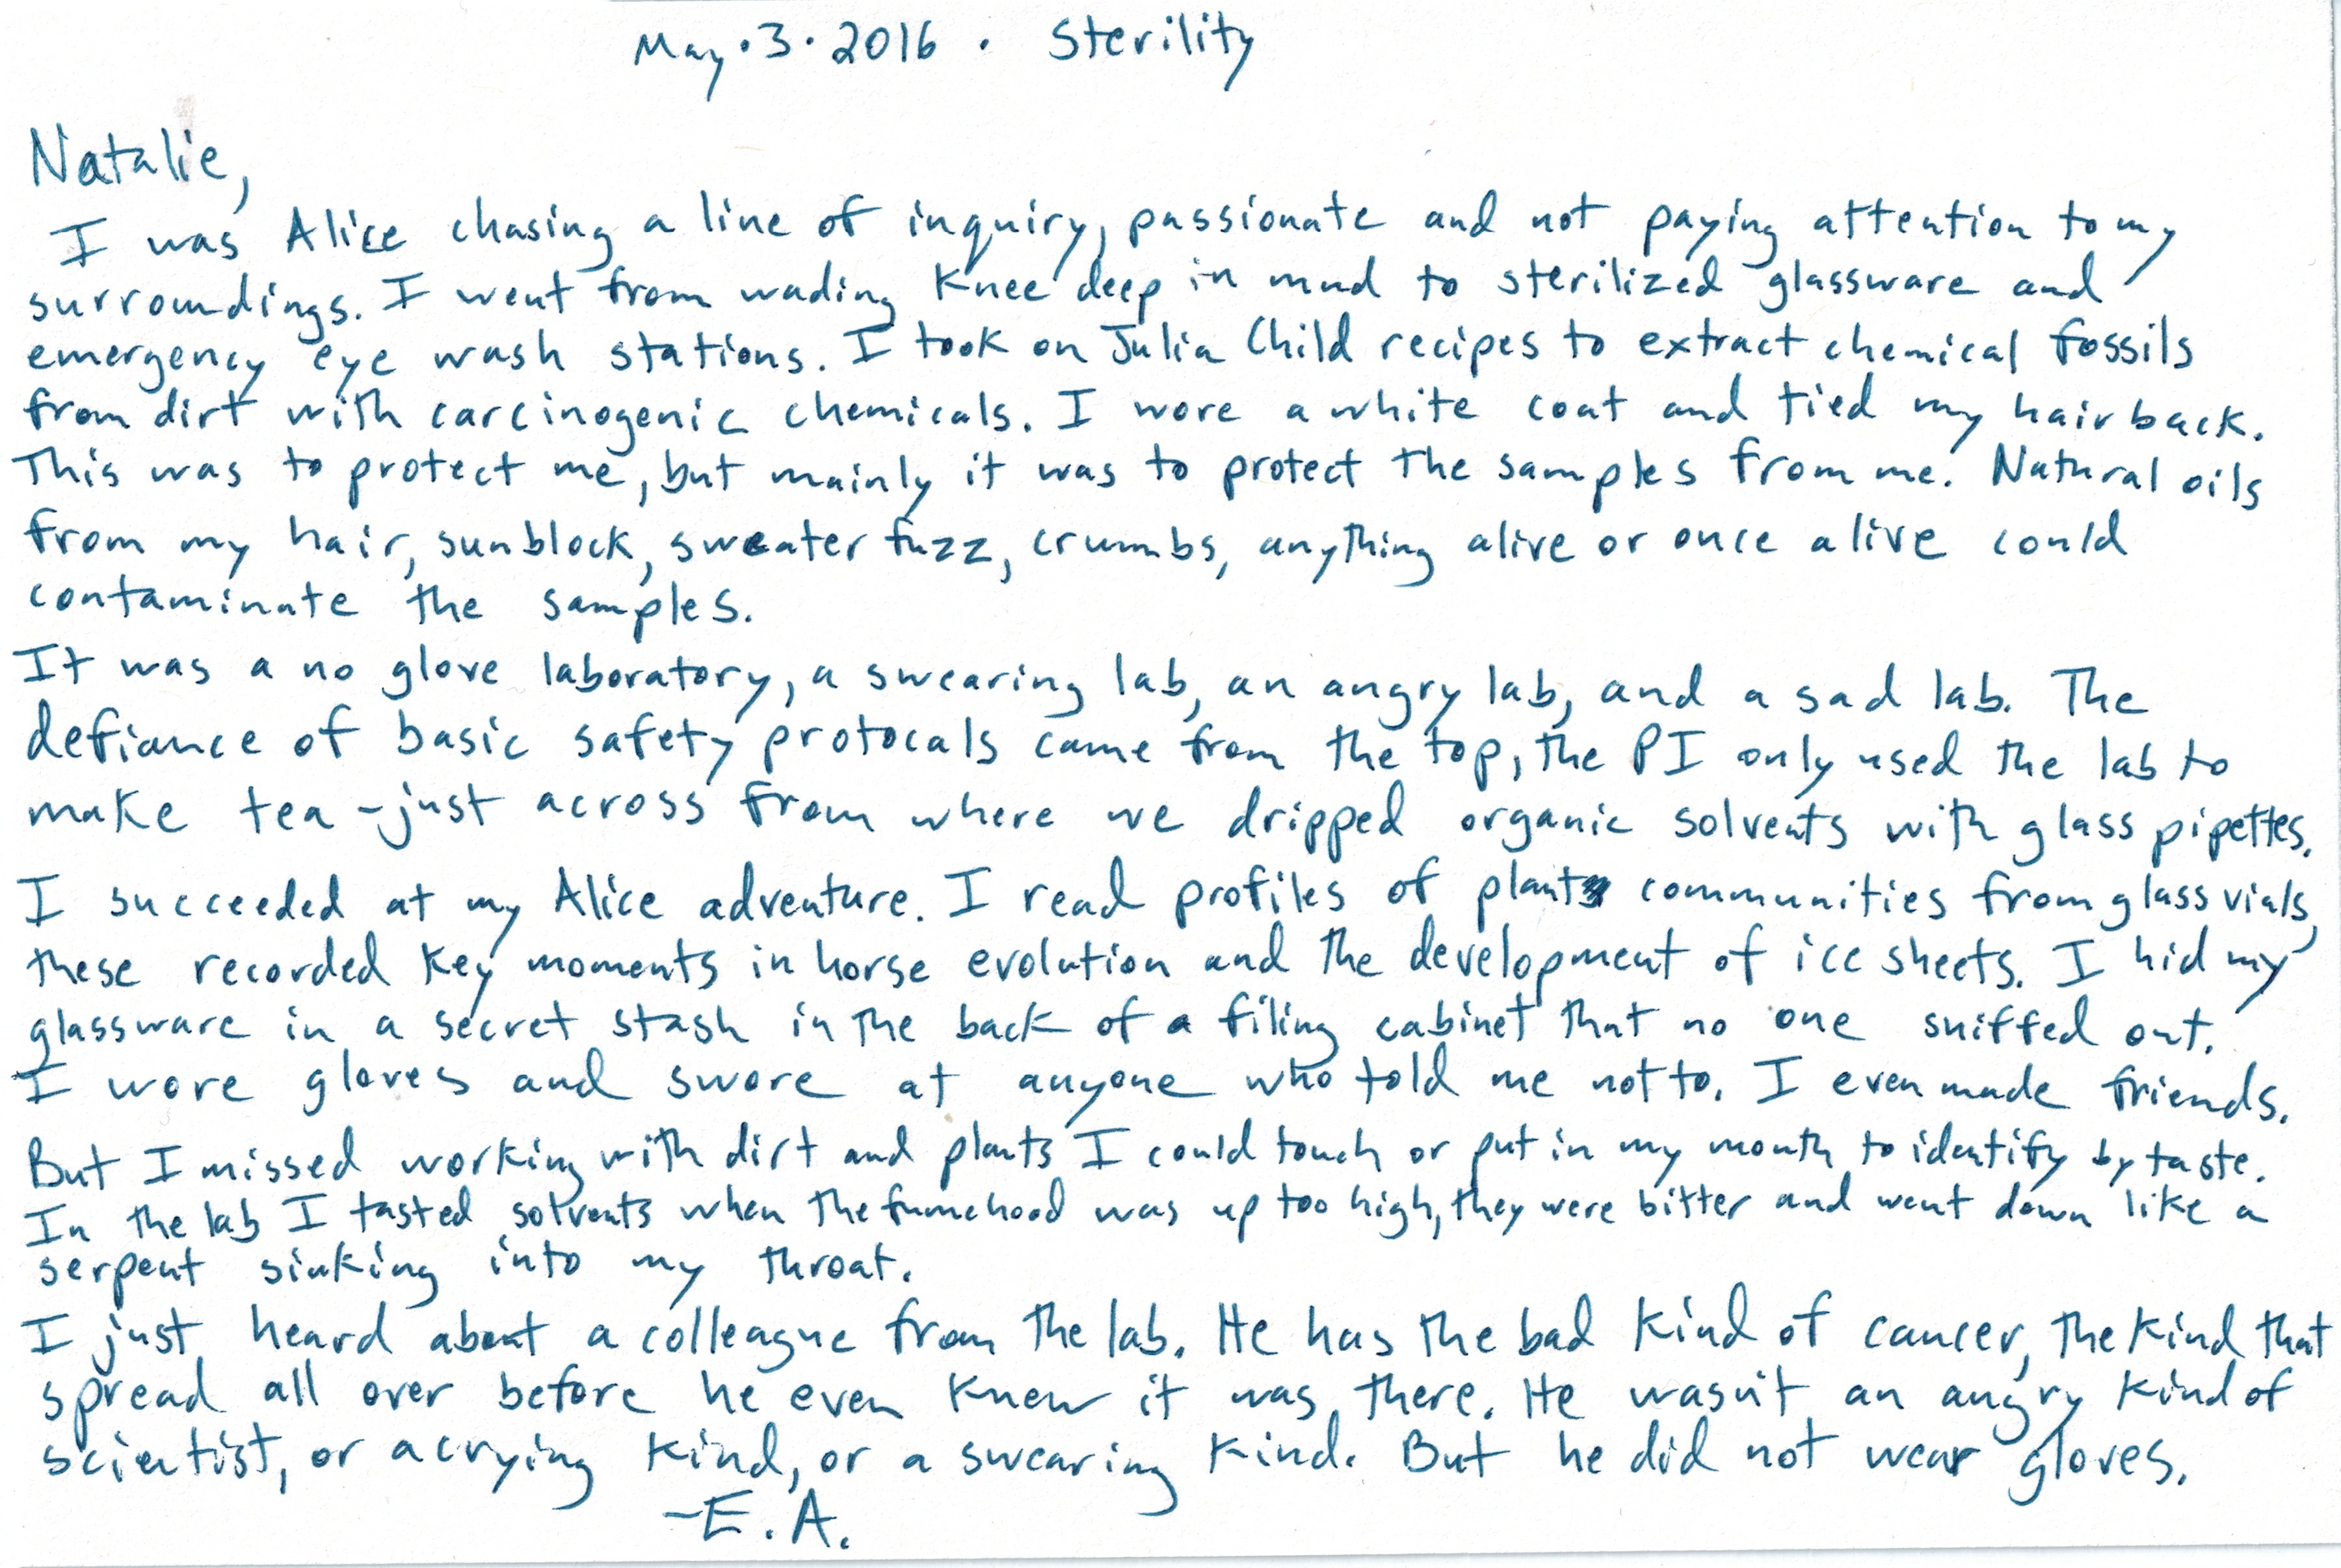 May·3·2016 · Sterility
Natalie,
I was Alice chasing a line of inquiry, passionate and not paying attention to my
surroundings. I went from wading knee deep in mud to sterilized glassware and
emergency eye wash stations. I took on Julia Child recipes to extract chemical fossils
from dirt with carcinogenic chemicals. I wore a white coat and tied my hair back.
This was to protect me, but mainly it was to protect the samples from me. Natural oils
from my hair, sunblock, sweater fuzz, crumbs, anything alive or once alive could
contaminate the samples.
It was a no glove laboratory, a swearing lab, an angry lab, and a sad lab. The
defiance of basic safety protocals came from the top, the PI only used the lab to
make tea - just across from where we dripped organic solvents with glass pipettes.
I succeeded at my Alice adventure. I read profiles of plant communities from glass vials,
these recorded key moments in horse evolution and the development of ice sheets. I hid my
glassware in a secret stash in the back of a filing cabinet that no one sniffed out.
I wore gloves and swore at anyone who told me not to. I even made friends.
But I missed working with dirt and plants I could touch or put in my mouth to identify by taste.
In the lab I tasted solvents when the fumehood was up too high, they were bitter and went down like a
serpent sinking into my throat.
I just heard about a colleague from the lab. He has the bad kind of cancer, the kind that
spread all over before he even knew it was there. He wasn't an angry kind of
scientist, or a crying kind, or a swearing kind. But he did not wear gloves.
-E.A.